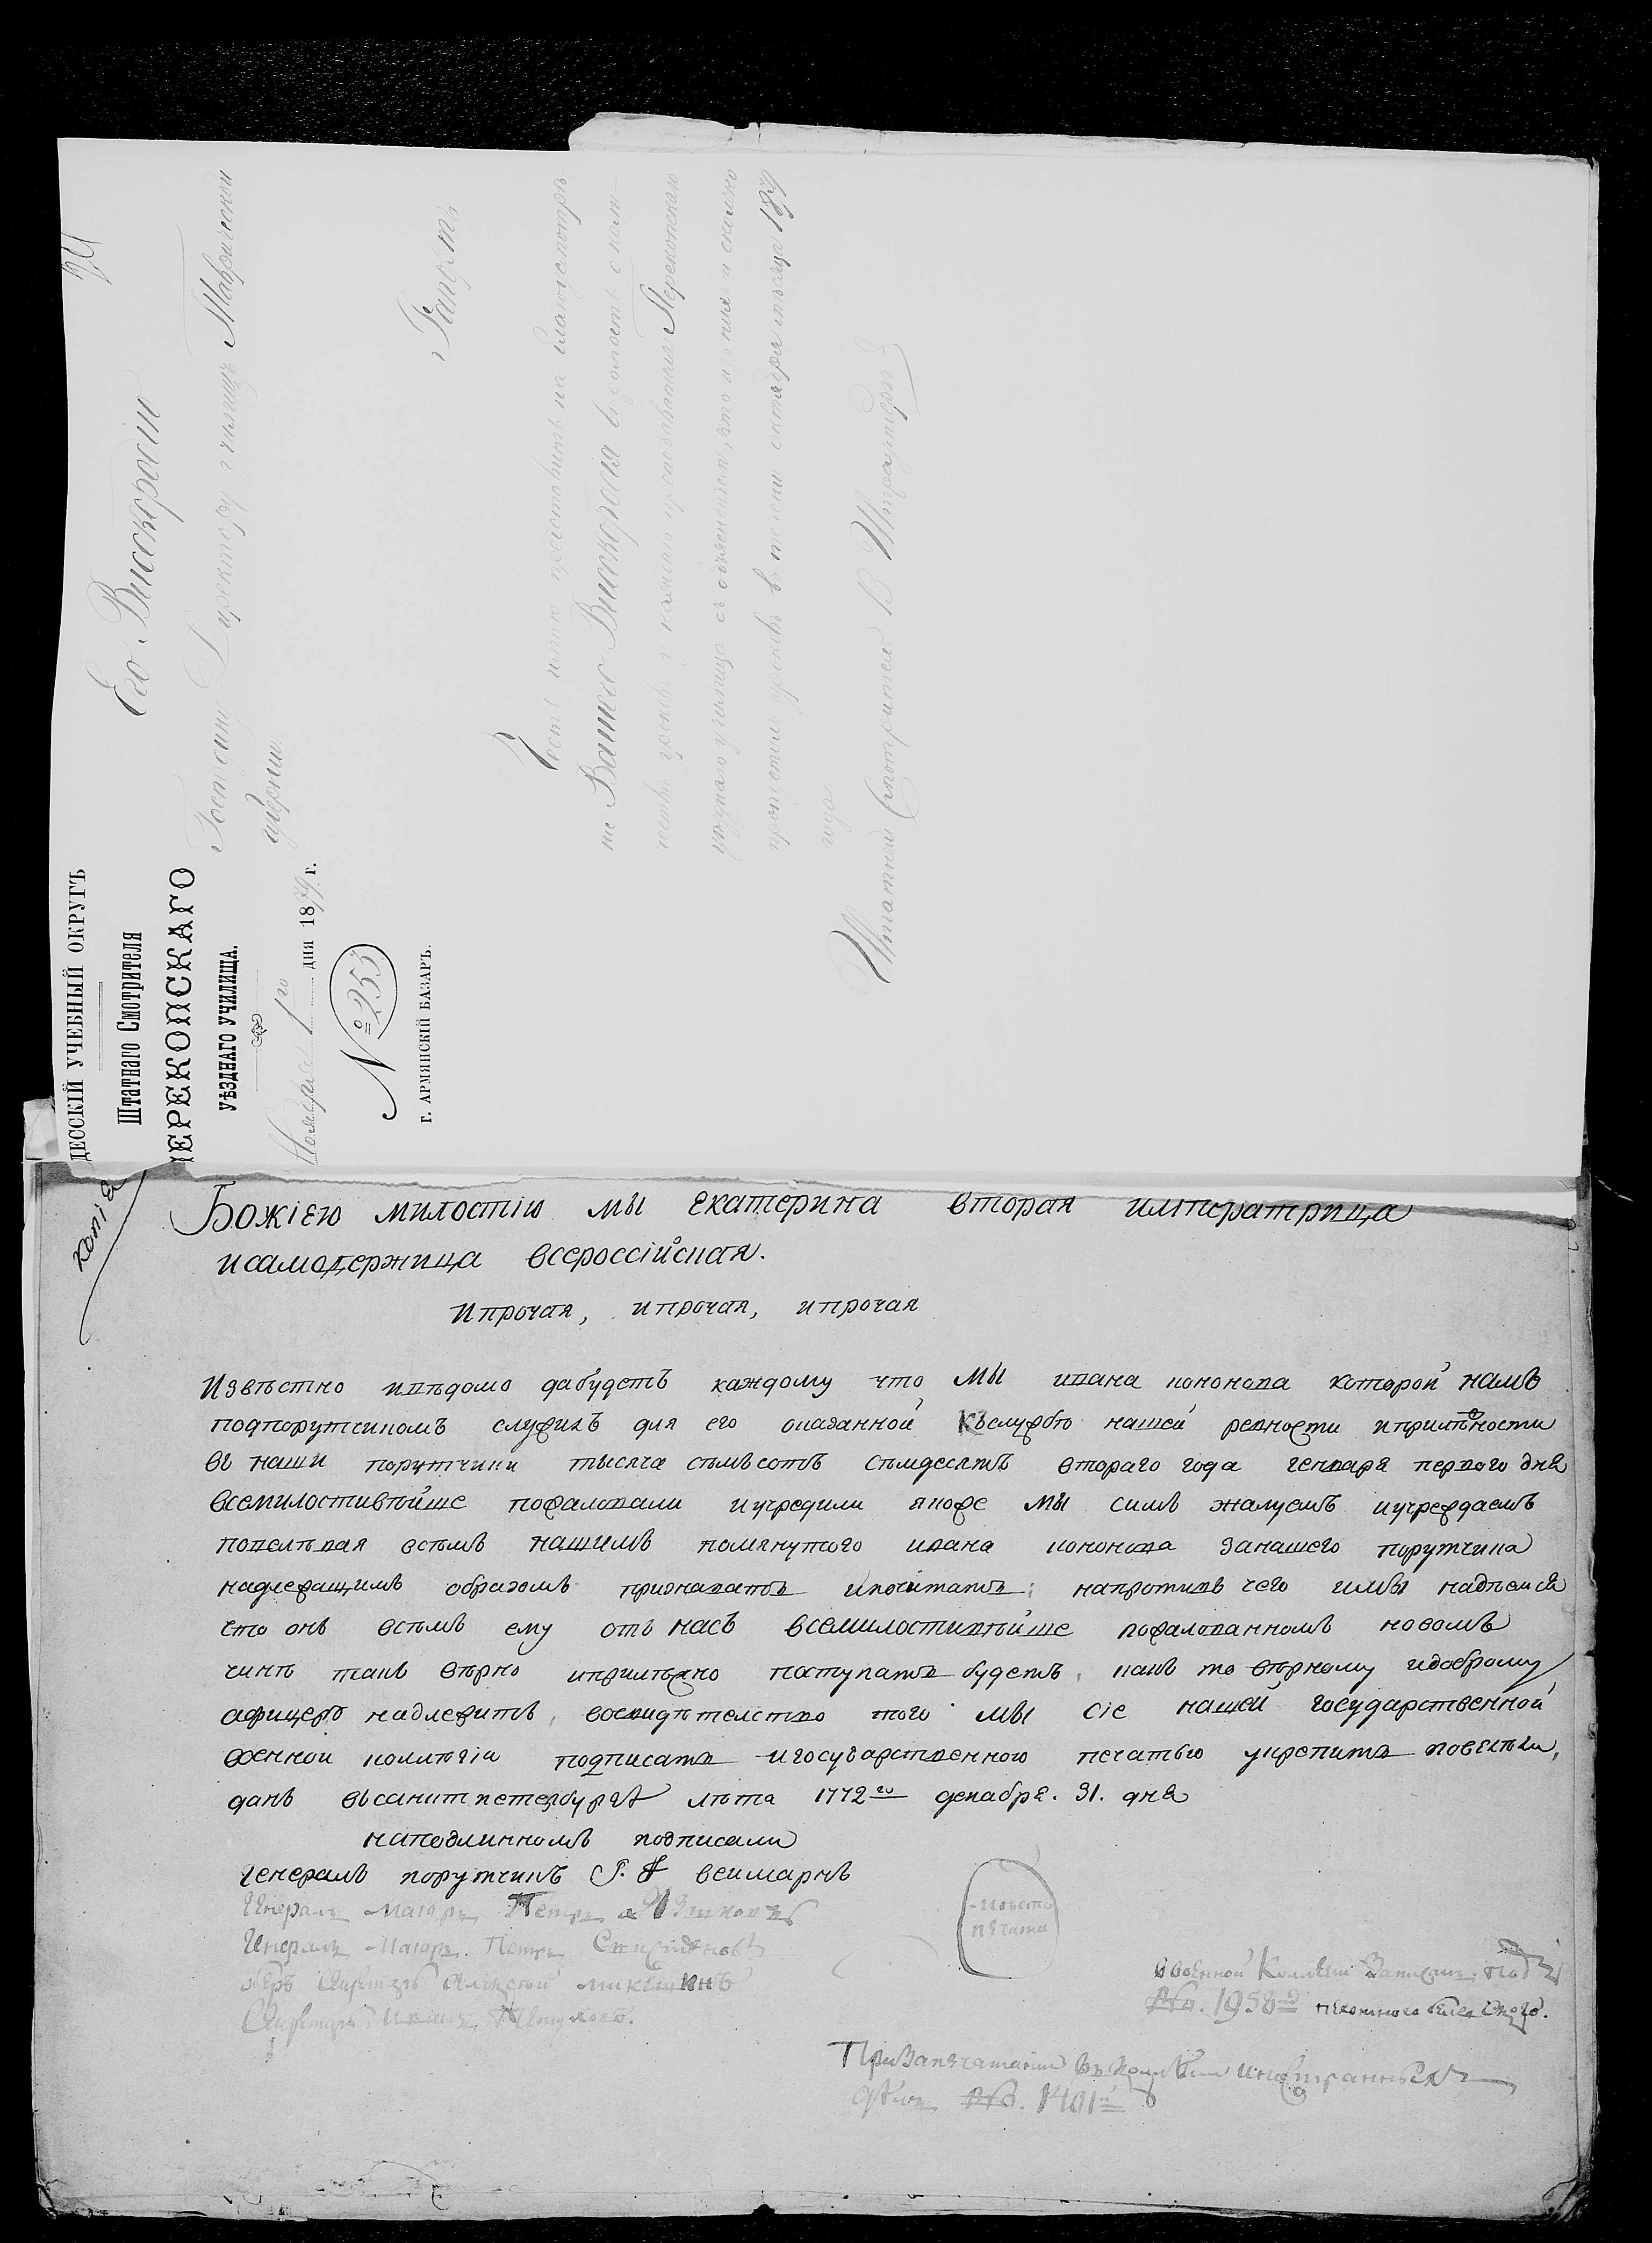 24
ДЕССКІЙ УЧЕБНЫЙ ОКРУГЪ
Штатнаго Смотрителя
ПЕРЕКОПСКАГО
УѢЗДНАГО УЧИЛИЩА.
Ноября 1го дня 1879 г.
№ 253
Г. АРМЯНСКІЙ БАЗАРЪ.
Его Высокородію
Господину Директору училищъ Таврической
губерніи
Рапортъ
Честь имѣю представить на благоусмотрѣ
ніе Вашего Высокородія вѣдомость о коли-
чествѣ уроковъ у каждаго преподавателя Перекопскаго
уѣзднаго училища съ объясненіемъ, кто изъ нихъ и сколько
пропустилъ уроковъ въ теченіи октября мѣсяца 1879
года
Штатный Смотритель В
копія
Божіею милостію мы екатерина вторая императрица
исамодержица всероссійская.
ипрочая, ипрочая, ипрочая
Извѣстно ивѣдомо дабудетъ каждому что мы ивана кононова которой намъ
подпорутчикомъ служилъ для его оказанной къслужбѣ нашей ревности иприлѣжности
въ наши порутчики тысяча семьсотъ семдесятъ втораго года генваря перваго дня
всемилостивѣйше пожаловали иучредили якоже мы симъ жалуемъ иучреждаемъ
повелѣвая всѣмъ нашимъ помянутого ивана кононова занашего порутчика
надлежащимъ образомъ признавать ипочитать: напротивъ чего имы надѣемся
что онъ всѣмъ ему отъ насъ всемилостивѣйше пожалованномъ новомъ
чинѣ такъ вѣрно иприлѣжно поступать будетъ, какъ то вѣрному идоброму
афицеру надлежитъ, восвидѣтелство того мы сіе нашей государственной
военной коллегіи подписать игосударственною печатью укрепить повелѣли,
данъ всанктпетербургѣ лѣта 1772го декабря. 31. дня
наподлинномъ подписали
генералъ порутчикъ веимарнъ
Генералъ Маіоръ Петръ
Генералъ Маіоръ Петръ
Оберъ Секретарь Алексѣй
Секретарь Иванъ
мѣсто
печати
вовоенной Коллегіи Записанъ под
№. 1958
При Запечатаніи въ Коллегіи иностранныхъ
дѣлъ №. 1401